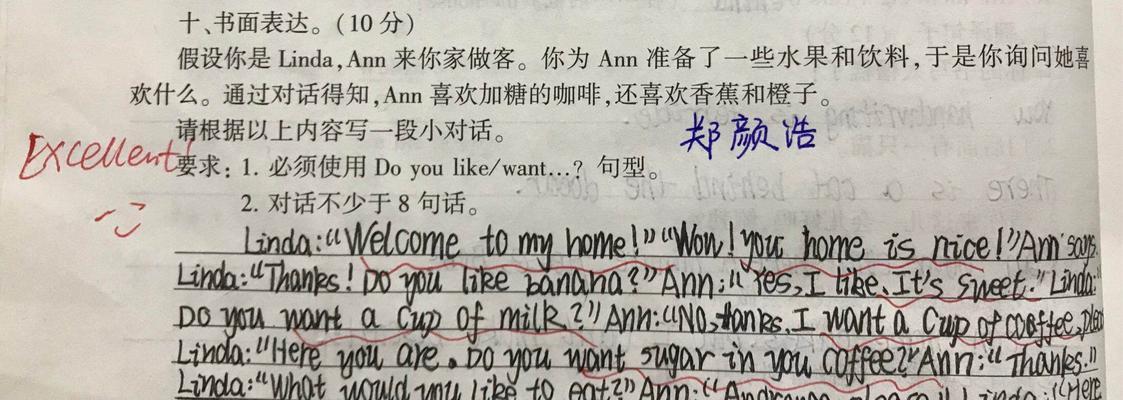 十、书面表达。(10 分)
假设你是 Linda, Ann 来你家做客。你为 Ann 准备了一些水果和饮料,于是你询问她喜
欢什么。通过对话得知,Ann 喜欢加糖的咖啡,还喜欢香蕉和橙子。
请根据以上内容写一段小对话。
郑颜浩
Excellent!
要求: 1. 必须使用 Do you like/want...? 句型。
2. 对话不少于 8 句话。
Linda:“Welcome to my home!”“Wow! you home is nice!”Ann says.
Linda:“Thanks! Do you like banana?”Ann:“Yes, I like. It's sweet.”Linda:“
Do you want a cup of milk?”Ann:“No, thanks. I want a cup of coffee,
Linda:“Here you are. Do you want sugar in you coffee?”Ann:“Thanks.”
Linda:“What would you like to eat?”Ann:“And please.”Linda:“Here